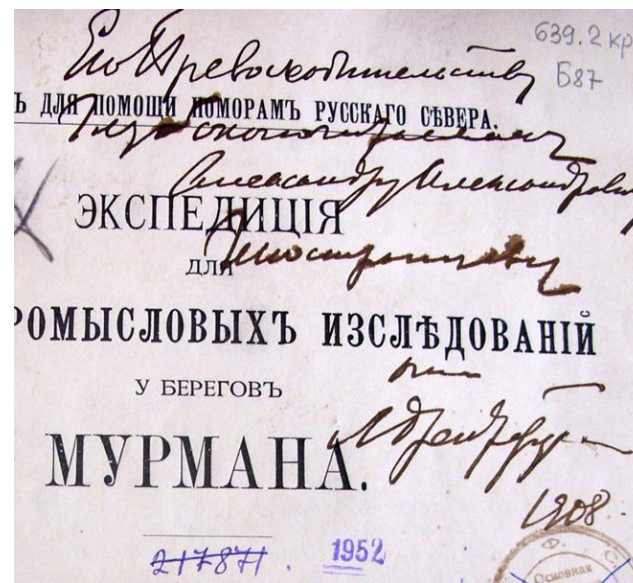 Его Превосходительству
639.2 кр
Б87
Ъ ДЛЯ ПОМОЩИ ПОМОРАМЪ РУССКАГО СѢВЕРА.
Глубокоуважаемому
Александру Александровичу
ЭКСПЕДИЦІЯ
ДЛЯ
РОМЫСЛОВЫХЪ ИЗСЛѢДОВАНІЙ
У БЕРЕГОВЪ
МУРМАНА.
1908
217871. 1952
Основная